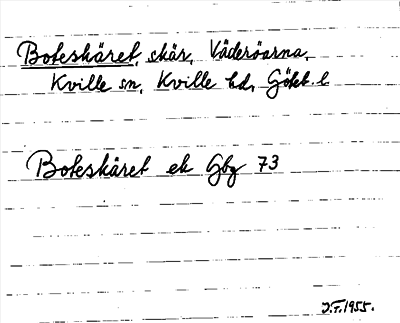 Boteskäret, skär, Väderöarna,
Kville sn, Kville hd, Göteb. l
Boteskäret ek Gbg 73
J.F. 1955.